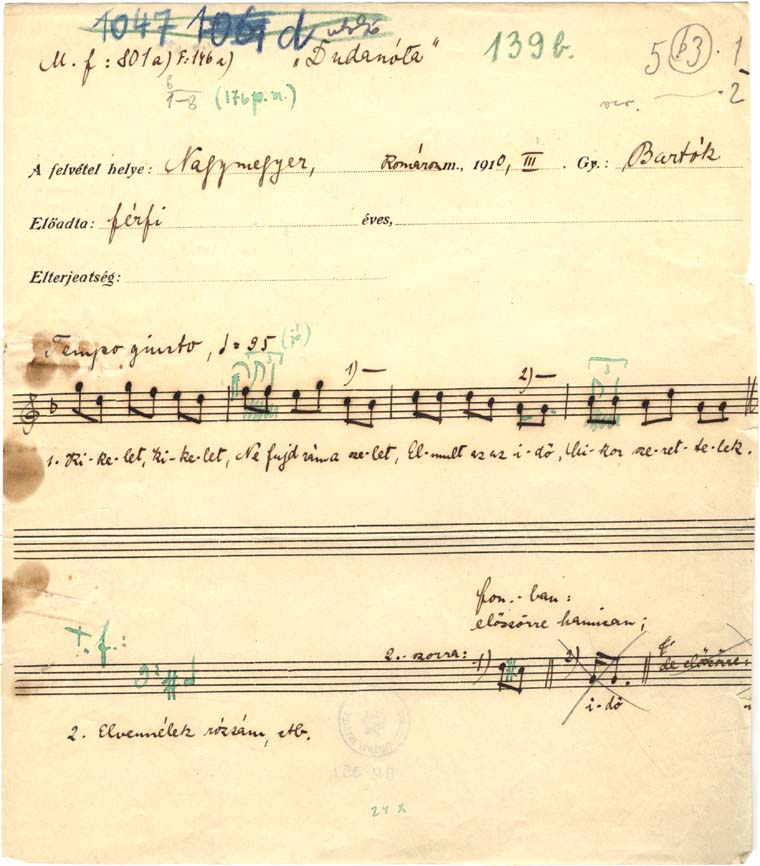 1047 1061 d utolsó
M. f: 801a) F. 146a) „Dudanóta“ 139b. 5 3. 1
1–8 (176 p. n.) var. 2
A felvétel helye: Nagymegyer, Komárom m., 1910, III. Gy.: Bartók
Előadta: férfi éves,
Elterjedtség:
Tempo giusto, = 95 (jó)
3 1) — 2) — 3
1. Ki-ke-let, ki-ke-let, Ne fujd rám a sze-let, El-mult az az i-dő, Mi-kor sze-ret-te-lek.
fon.-ban:
előszörre hamisan;
T. f.:
2. sorra: 1) 2) de előszörre:
i-dő
2. Elvennélek rózsám, stb.
24 x